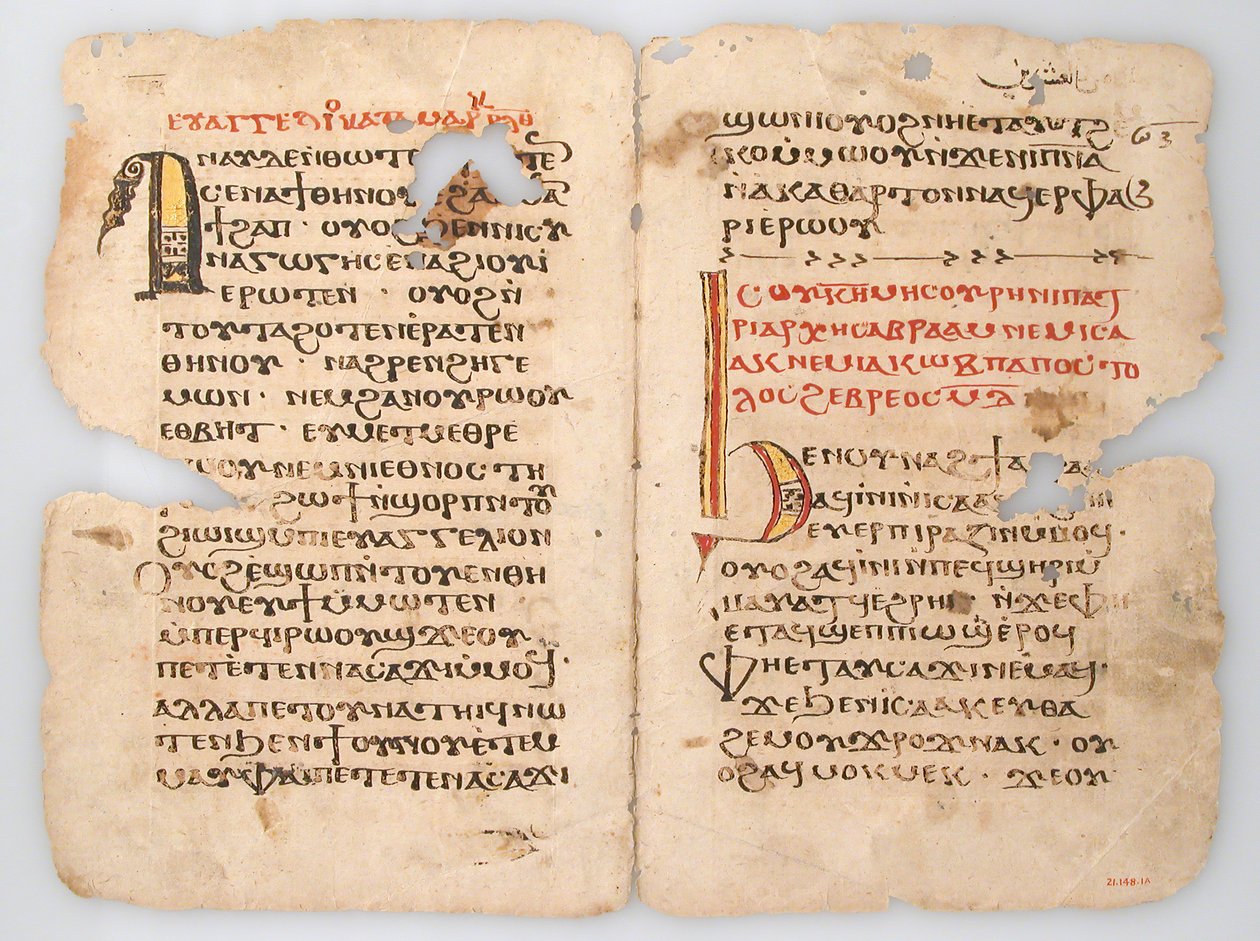 ⲉⲩⲁⲅⲅⲉⲗⲓⲟⲛ ⲕⲁⲧⲁ ⲙⲁⲣⲕⲟⲛ
ⲁⲛⲁⲩ ⲇⲉ ⲛⲑⲱⲧⲉⲛ
ⲥⲉⲛⲁϯⲑⲏⲛⲟⲩ
ϯϩⲁⲡ · ⲟⲩⲟϩ ϧⲉⲛ ⲛⲓⲥⲩ
ⲛⲁⲅⲱⲅⲏ ⲥⲉⲛⲁϩⲓⲟⲩⲓ̀
ⲉⲣⲱⲧⲉⲛ · ⲟⲩⲟϩ ⲛ̀
ⲧⲟⲩⲧⲁϩⲟⲧⲉⲛ ⲉ̀ⲣⲁⲧⲉⲛ
ⲑⲏⲛⲟⲩ · ⲛⲁϩⲣⲉⲛ ϩⲏⲅⲉ
ⲙⲱⲛ · ⲛⲉⲙ ϩⲁⲛⲟⲩⲣⲱⲟⲩ
ⲉⲑⲃⲏⲧ · ⲉⲩⲙⲉⲧⲙⲉⲑⲣⲉ
ⲛⲱⲟⲩ ⲛⲉⲙ ⲛⲓⲉⲑⲛⲟⲥ ⲧⲏ
ϩⲱϯ ⲛ̀ϣⲟⲣⲡ ⲛ̀ⲧⲟⲩ
ϩⲓⲱⲓϣ ⲙⲡⲓⲉⲩⲁⲅⲅⲉⲗⲓⲟⲛ
ⲟⲩⲟϩ ⲉϣⲱⲡ ⲛ̀ⲧⲟⲩⲉⲛ ⲑⲏ
ⲛⲟⲩ ⲉⲩϯ ⲙ̀ⲙⲱⲧⲉⲛ
ⲙ̀ⲡⲉⲣϥⲓⲣⲱⲟⲩϣ ϫⲉ ⲟⲩ
ⲡⲉⲧⲉ̀ⲧⲉⲛⲛⲁⲥⲁϫⲓ ⲙ̀ⲙⲟϥ ·
ⲁⲗⲗⲁ ⲡⲉⲧⲟⲩⲛⲁⲧⲏⲓϥ ⲛⲱ
ⲧⲉⲛ ϧⲉⲛ ϯⲟⲩⲛⲟⲩ ⲉ̀ⲧⲉⲙ
ⲙⲁⲩ ⲫⲁⲓ ⲡⲉⲧⲉⲧⲉⲛⲁⲥⲁϫⲓ
ϣⲱⲛⲓ ⲟⲩⲟϩ ⲛⲏⲉⲧⲁⲩ
ⲕⲟ ⲙ̀ⲙⲱⲟⲩ ⲛ̀ϫⲉ ⲛⲓⲡ̅ⲛ̅ⲁ̅
ⲛ̀ⲁⲕⲁⲑⲁⲣⲧⲟⲛ ⲛⲁϥⲉⲣⲫⲁϧ
ⲣⲓ ⲉ̀ⲣⲱⲟⲩ
ⲥⲟⲩ ⲕ̅ⲏ̅ ⲙⲏⲥⲟⲩⲣⲏ ⲛⲓⲡⲁⲧ
ⲣⲓⲁⲣⲭⲏⲥ ⲁⲃⲣⲁⲁⲙ ⲛⲉⲙ ⲓⲥⲁ
ⲁⲕ ⲛⲉⲙ ⲓⲁⲕⲱⲃ ⲡⲁⲡⲟⲥⲧⲟ
ⲗⲟⲥ ϩⲉⲃⲣⲉⲟⲥ
ϧⲉⲛ ⲟⲩⲛⲁϩϯ ⲁ
ⲁϥⲓⲛⲓ ⲛ̀ⲓⲥⲁⲁⲕ
ⲉⲩⲉⲣⲡⲓⲣⲁⲍⲓⲛ ⲙ̀ⲙⲟϥ ·
ⲟⲩⲟϩ ⲁϥⲓ̀ⲛⲓ ⲙ̀ⲡⲉϥϣⲏⲣⲓ ⲙ̀
ⲙⲁⲩⲁⲧϥ ⲉ̀ϩⲣⲏⲓ ⲛ̀ϫⲉ ⲫⲏ
ⲉⲧⲁϥϣⲉⲡ ⲡⲓⲱϣ ⲉ̀ⲣⲟϥ
ⲫⲏ ⲉⲧⲁⲩⲥⲁϫⲓ ⲛⲉⲙⲁϥ ·
ϫⲉ ϧⲉⲛ ⲓⲥⲁⲁⲕ ⲉⲩⲑⲁ
ϩⲉⲙ ⲟⲩϫⲣⲟϫ ⲛⲁⲕ · ⲟⲩ
ⲟϩ ⲁϥⲙⲟⲕⲙⲉⲕ · ϫⲉ ⲟⲩ
21.148.1A